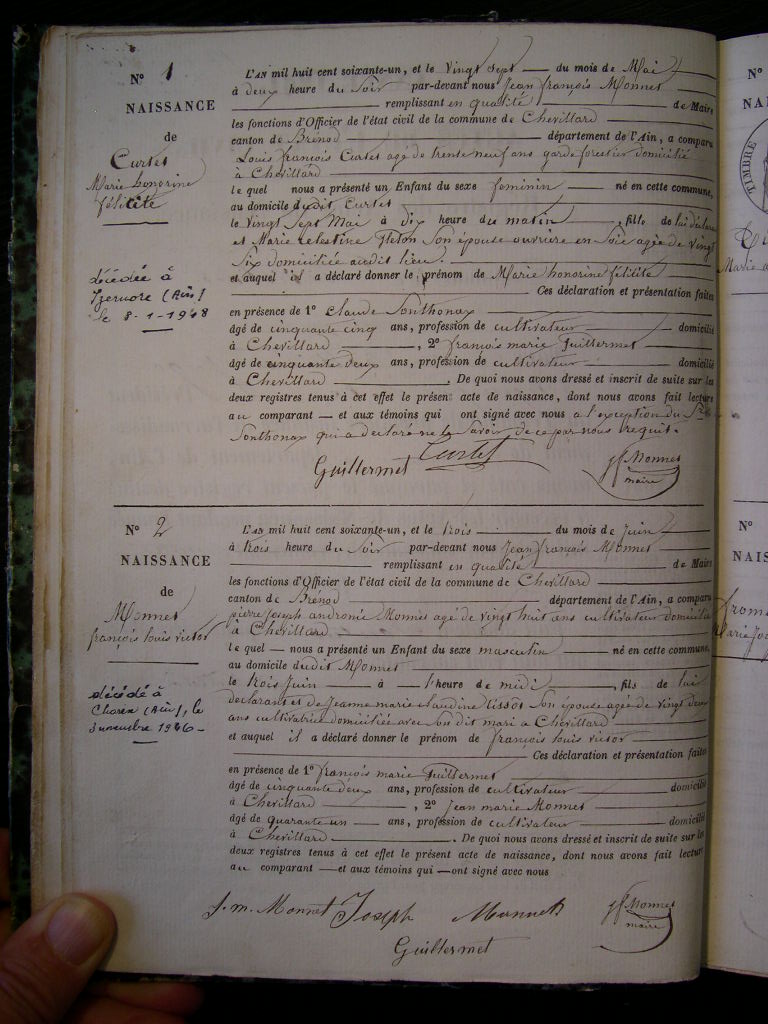 N° 1
NAISSANCE
de
Curtet
Marie honorine
félicité
décédée à
Izernore (Ain)
le 8-1-1948
L'AN mil huit cent soixante-un, et le Vingt Sept du mois de Mai
à deux heure du Soir par-devant nous Jean françois Monnet
remplissant en qualité de Maire
les fonctions d'Officier de l'état civil de la commune de Chevillard
canton de Brénod département de l'Ain, a comparu
Louis françois Curtet agé de trente neuf ans garde forestier domicilié
à Chevillard
le quel nous a présenté un Enfant du sexe feminin né en cette commune,
au domicile dudit Curtet
le Vingt Sept Mai à dix heure du matin, fille de lui déclarant
et Marie Celestine Son épouse ouvrière en Soie agée de Vingt
Six domiciliée audit lieu.
et auquel il a déclaré donner le prénom de Marie honorine félicité
Ces déclaration et présentation faites
en présence de 1° Claude Sonthonax
âgé de cinquante cinq ans, profession de cultivateur domicilié
à Chevillard, 2° françois marie Guillermet
âgé de cinquante deux ans, profession de cultivateur domicilié
à Chevillard. De quoi nous avons dressé et inscrit de suite sur les
deux registres tenus à cet effet le présent acte de naissance, dont nous avons fait lecture
au comparant et aux témoins qui ont signé avec nous a l'exception du Sr
Sonthonax qui a declaré ne le Savoir de ce par nous requit.
Guillermet Curtet jf Monnet
maire
N° 2
NAISSANCE
de
Monnet
françois louis victor
décédé à
(Ain), le
3 novembre 1946
L'AN mil huit cent soixante-un, et le trois du mois de Juin
à trois heure du Soir par-devant nous Jean françois Monnet
remplissant en qualité de Maire
les fonctions d'Officier de l'état civil de la commune de Chevillard
canton de Brénod département de l'Ain, a comparu
pierre Joseph Monnet agé de vingt huit ans cultivateur domicilié
à Chevillard
le quel nous a présenté un Enfant du sexe masculin né en cette commune,
au domicile dudit Monnet
le trois Juin à l'heure de midi, fils de lui
declarant et de Jeanne marie claudine tissot Son épouse agée de vingt deux
ans cultivatrice domiciliée avec Son dit mari a Chevillard
et auquel il a déclaré donner le prénom de françois louis victor
Ces déclaration et présentation faites
en présence de 1° françois marie Guillermet
âgé de cinquante deux ans, profession de cultivateur domicilié
à Chevillard, 2° Jean marie Monnet
âgé de quarante un ans, profession de cultivateur domicilié
à Chevillard. De quoi nous avons dressé et inscrit de suite sur les
deux registres tenus à cet effet le présent acte de naissance, dont nous avons fait lecture
au comparant et aux témoins qui ont signé avec nous
j. m. Monnet Joseph Monnet jf Monnet
maire
Guillermet
N°
TIMBRE
N°